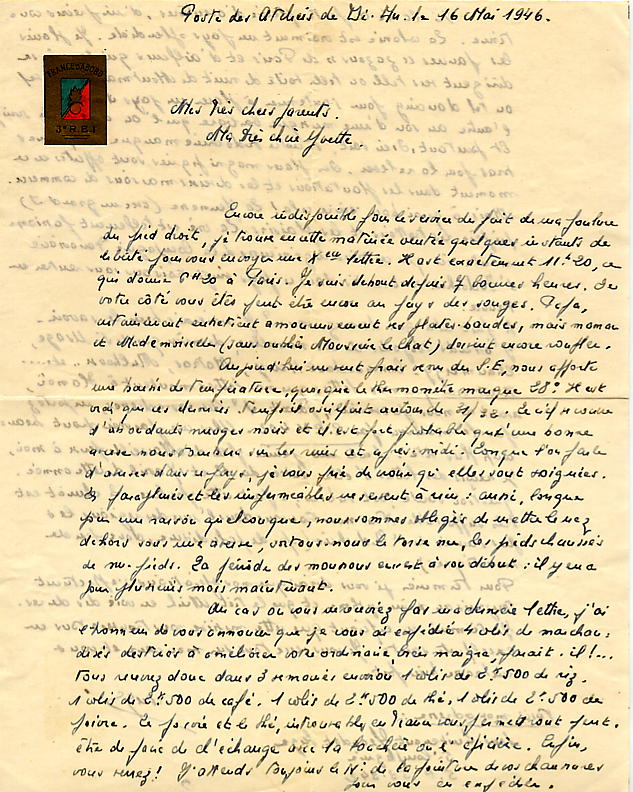 Poste des Ateliers de Di-An. le 16 Mai 1946.
FRANCE D'ABORD
3e R.B.I
Mes très chers parents.
Ma très chère Yvette.
Encore indisponible pour le service du fait de ma foulure
du pied droit, je trouve en cette matinée ventée quelques instants de
liberté pour vous envoyer une lettre. Il est exactement 11h20, ce
qui donne à Paris. Je suis debout depuis 7 bonnes heures. De
votre côté vous êtes peut être encore au pays des songes. Papa,
entretient amoureusement ses plates-bandes, mais maman
et Mademoiselle (sans oublier Moussire le chat) doivent encore ronfler.
Aujourd'hui un vent frais venu du S.E, nous apporte
une baisse de température, quoique le thermomètre marque 28° Il est
vrai que ces derniers temps il oscillait autour de 31/32. Le ciel se couvre
d'abondants nuages noirs et il est fort probable qu'une bonne
averse nous tombera sur les cet après-midi. Lorsque l'on parle
d'averses dans ce pays, je vous prie de croire qu'elles sont soignées.
Les parapluies et les imperméables ne servent à rien : aussi, lorsque
pour une raison quelconque, nous sommes obligés de mettre le nez
dehors sous une averse, sortons-nous le torse nu, les pieds chaussés
de nu-pieds. La période des moussons est à son début : il y en a
pour plusieurs mois maintenant.
Au cas où vous ne recevriez pas ma dernière lettre, j'ai
l'honneur de vous annoncer que je vous ai expédié 4 colis de marchan-
dises destinés à améliorer votre ordinaire, bien maigre, paraît-il!...
Vous recevrez donc dans 3 semaines environ 1 colis de 2K500 de riz.
1 colis de 2K500 de café. 1 colis de 2K500 de thé, 1 colis de 2K500 de
poivre. Le poivre et le thé, introuvables en France vous permettront peut-
être de faire de l'échange avec la bouchère ou l'épicière. Enfin,
vous verrez! J'attends toujours le N° de la pointure de vos chaussures
pour vous en expédier.